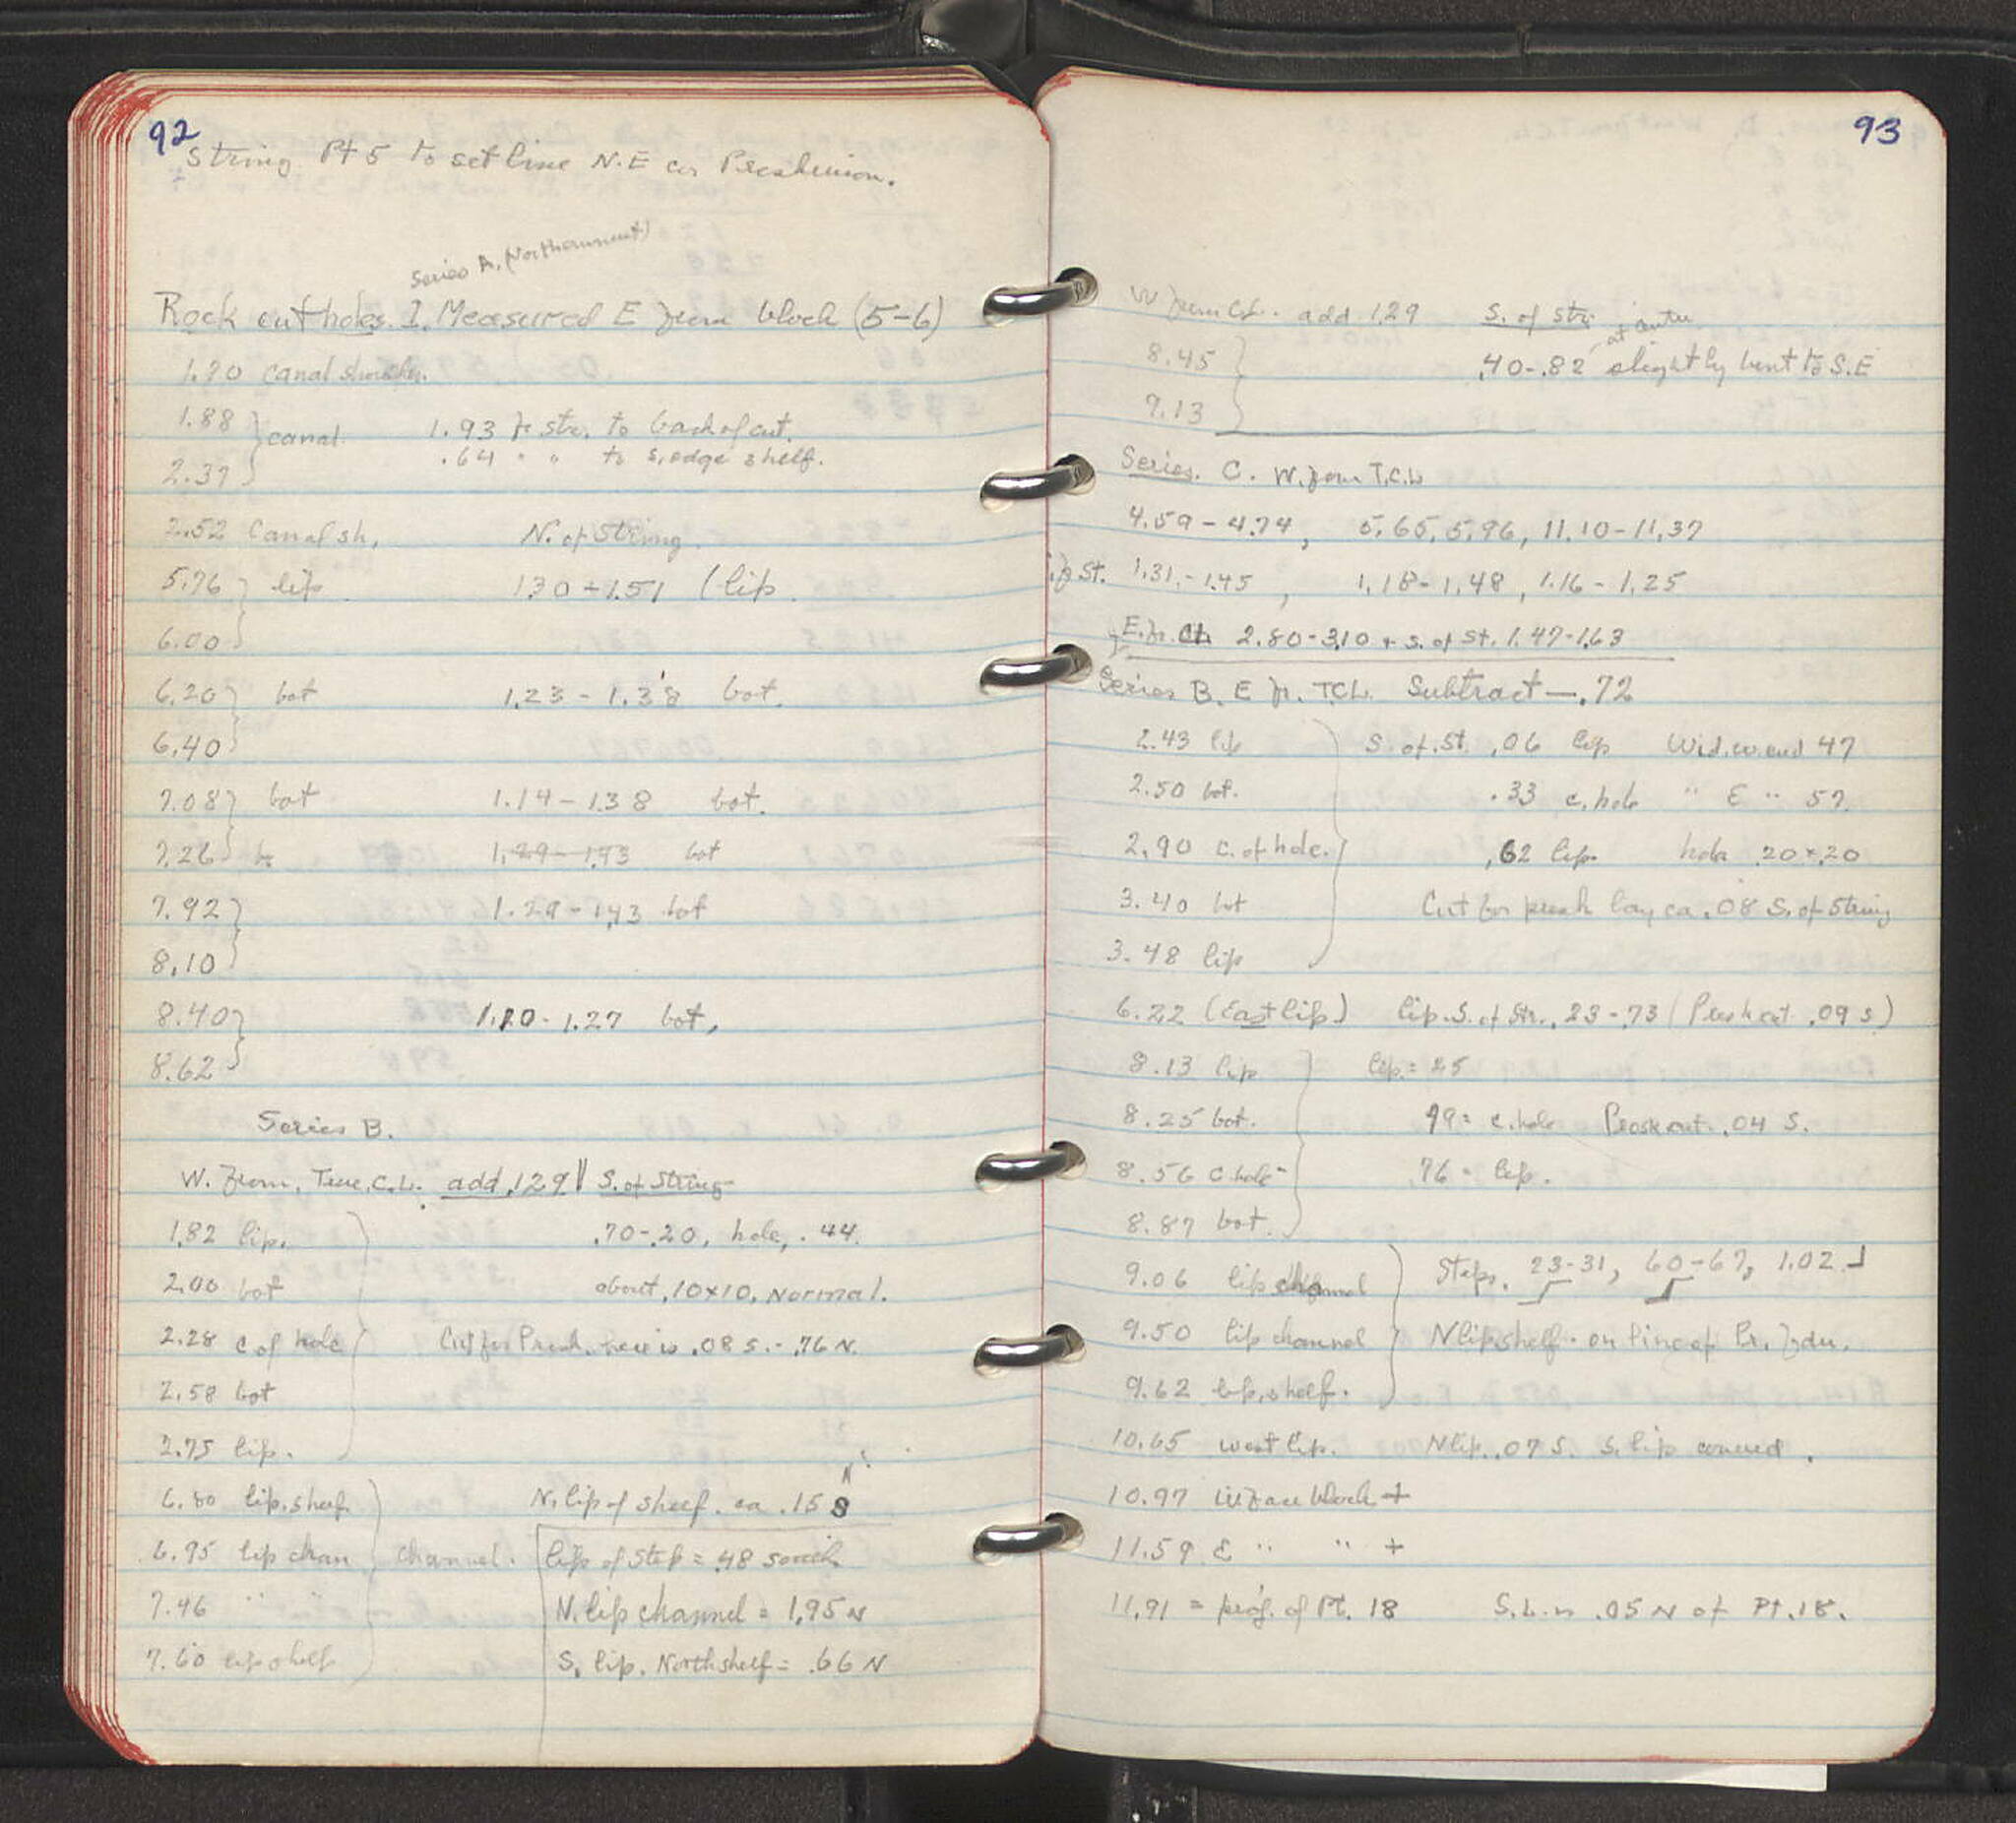 92
String Pt 5 to set line N.E cor Proskenion.
Series A. (Northernmost)
Rock cut holes. I. Measured E from block (5-6)
1.70 canal shoulder.
1.88 } canal. 1.93 fr str. to back of cut.
.64 " " to S. edge shelf.
2.37
2.52 Canal sh. N. of String
5.76 } lip 1.30 - 1.51 (lip.
6.00
6.20 } bot 1.23 - 1.38 bot.
6.40
7.08 } bot 1.14 - 1.38 bot.
7.26 1.29 - 1.43 bot
7.92 } 1.29 - 1.43 bot
8.10
8.40 } 1.20 - 1.27 bot.
8.62
Series B.
W. from True C.L. add .129 || S. of String
1.82 lip. .70-.20, hole, .44.
2.00 bot about .10x10, normal.
2.28 c of hole Cut for Prosk. here is .08 S. - .76 N.
2.58 bot
2.75 lip.
6.80 lip. shelf. N. lip of shelf. ca .15 S N
6.95 lip chan } channel. lip of step = .48 south
7.46 " " N. lip channel = 1.95 N
7.60 lip shelf S. lip. North shelf = .66 N
93
W from CL. add .129 S. of Str.
8.45 } .40-.82 slightly bent to S.E at center
9.13
Series C. W. from T.C.L
4.59 - 4.74, 5.65, 5.96, 11.10 - 11.37
fr St. 1.31 - 1.45, 1.18 - 1.48, 1.16 - 1.25
E. fr. CL 2.80 - 3.10 + S. of St. 1.47 - 1.63
Series B. E fr. TCL. Subtract — .72
2.43 lip S. of St. .06 lip Wid. W. end 47
2.50 bot. .33 c. hole " E " 57.
2.90 c. of hole. .62 lip. hole .20 x .20
3.40 bot Cut for prosk lay ca .08 S. of String
3.48 lip
6.22 (East lip) lip. S. of Str. .23 - .73 (Prosk cut .09 S)
8.13 lip lip. = 25
8.25 bot. 49 = c. hole Prosk cut .04 S.
8.56 c hole 76 = lip.
8.87 bot.
9.06 lip channel Steps. 23-31, 60-67, 1.02
9.50 lip channel N lip shelf. on line of Pr.
9.62 lip, shelf.
10.65 west lip. N lip. .07 S. S. lip covered.
10.97 W face block +
11.59 E " " +
11.91 = proj. of Pt. 18 S.L. is .05 N of Pt. 18.